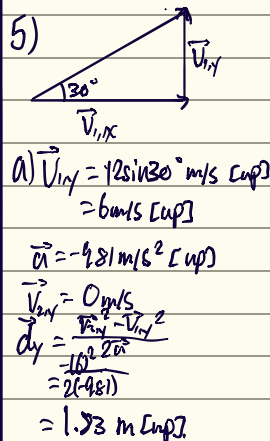 5)
30°
V⃗₁,y
V⃗₁,x
a) V⃗₁,y = 12sin30° m/s [up]
= 6m/s [up]
a⃗ = -9.81 m/s² [up]
V⃗₂,y = 0 m/s
d⃗y = (V⃗₂,y² - V⃗₁,y²) / 2a⃗
= -(6)² / 2(-9.81)
= 1.83 m [up]